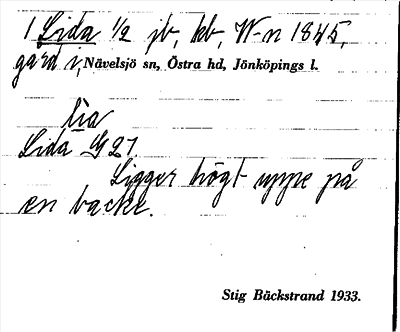 1 Lida 1/2 jb, kb, W-n 1845,
gård i, Nävelsjö sn, Östra hd, Jönköpings l.
lia
Lida G 21
Ligger högt uppe på
en backe.
Stig Bäckstrand 1933.